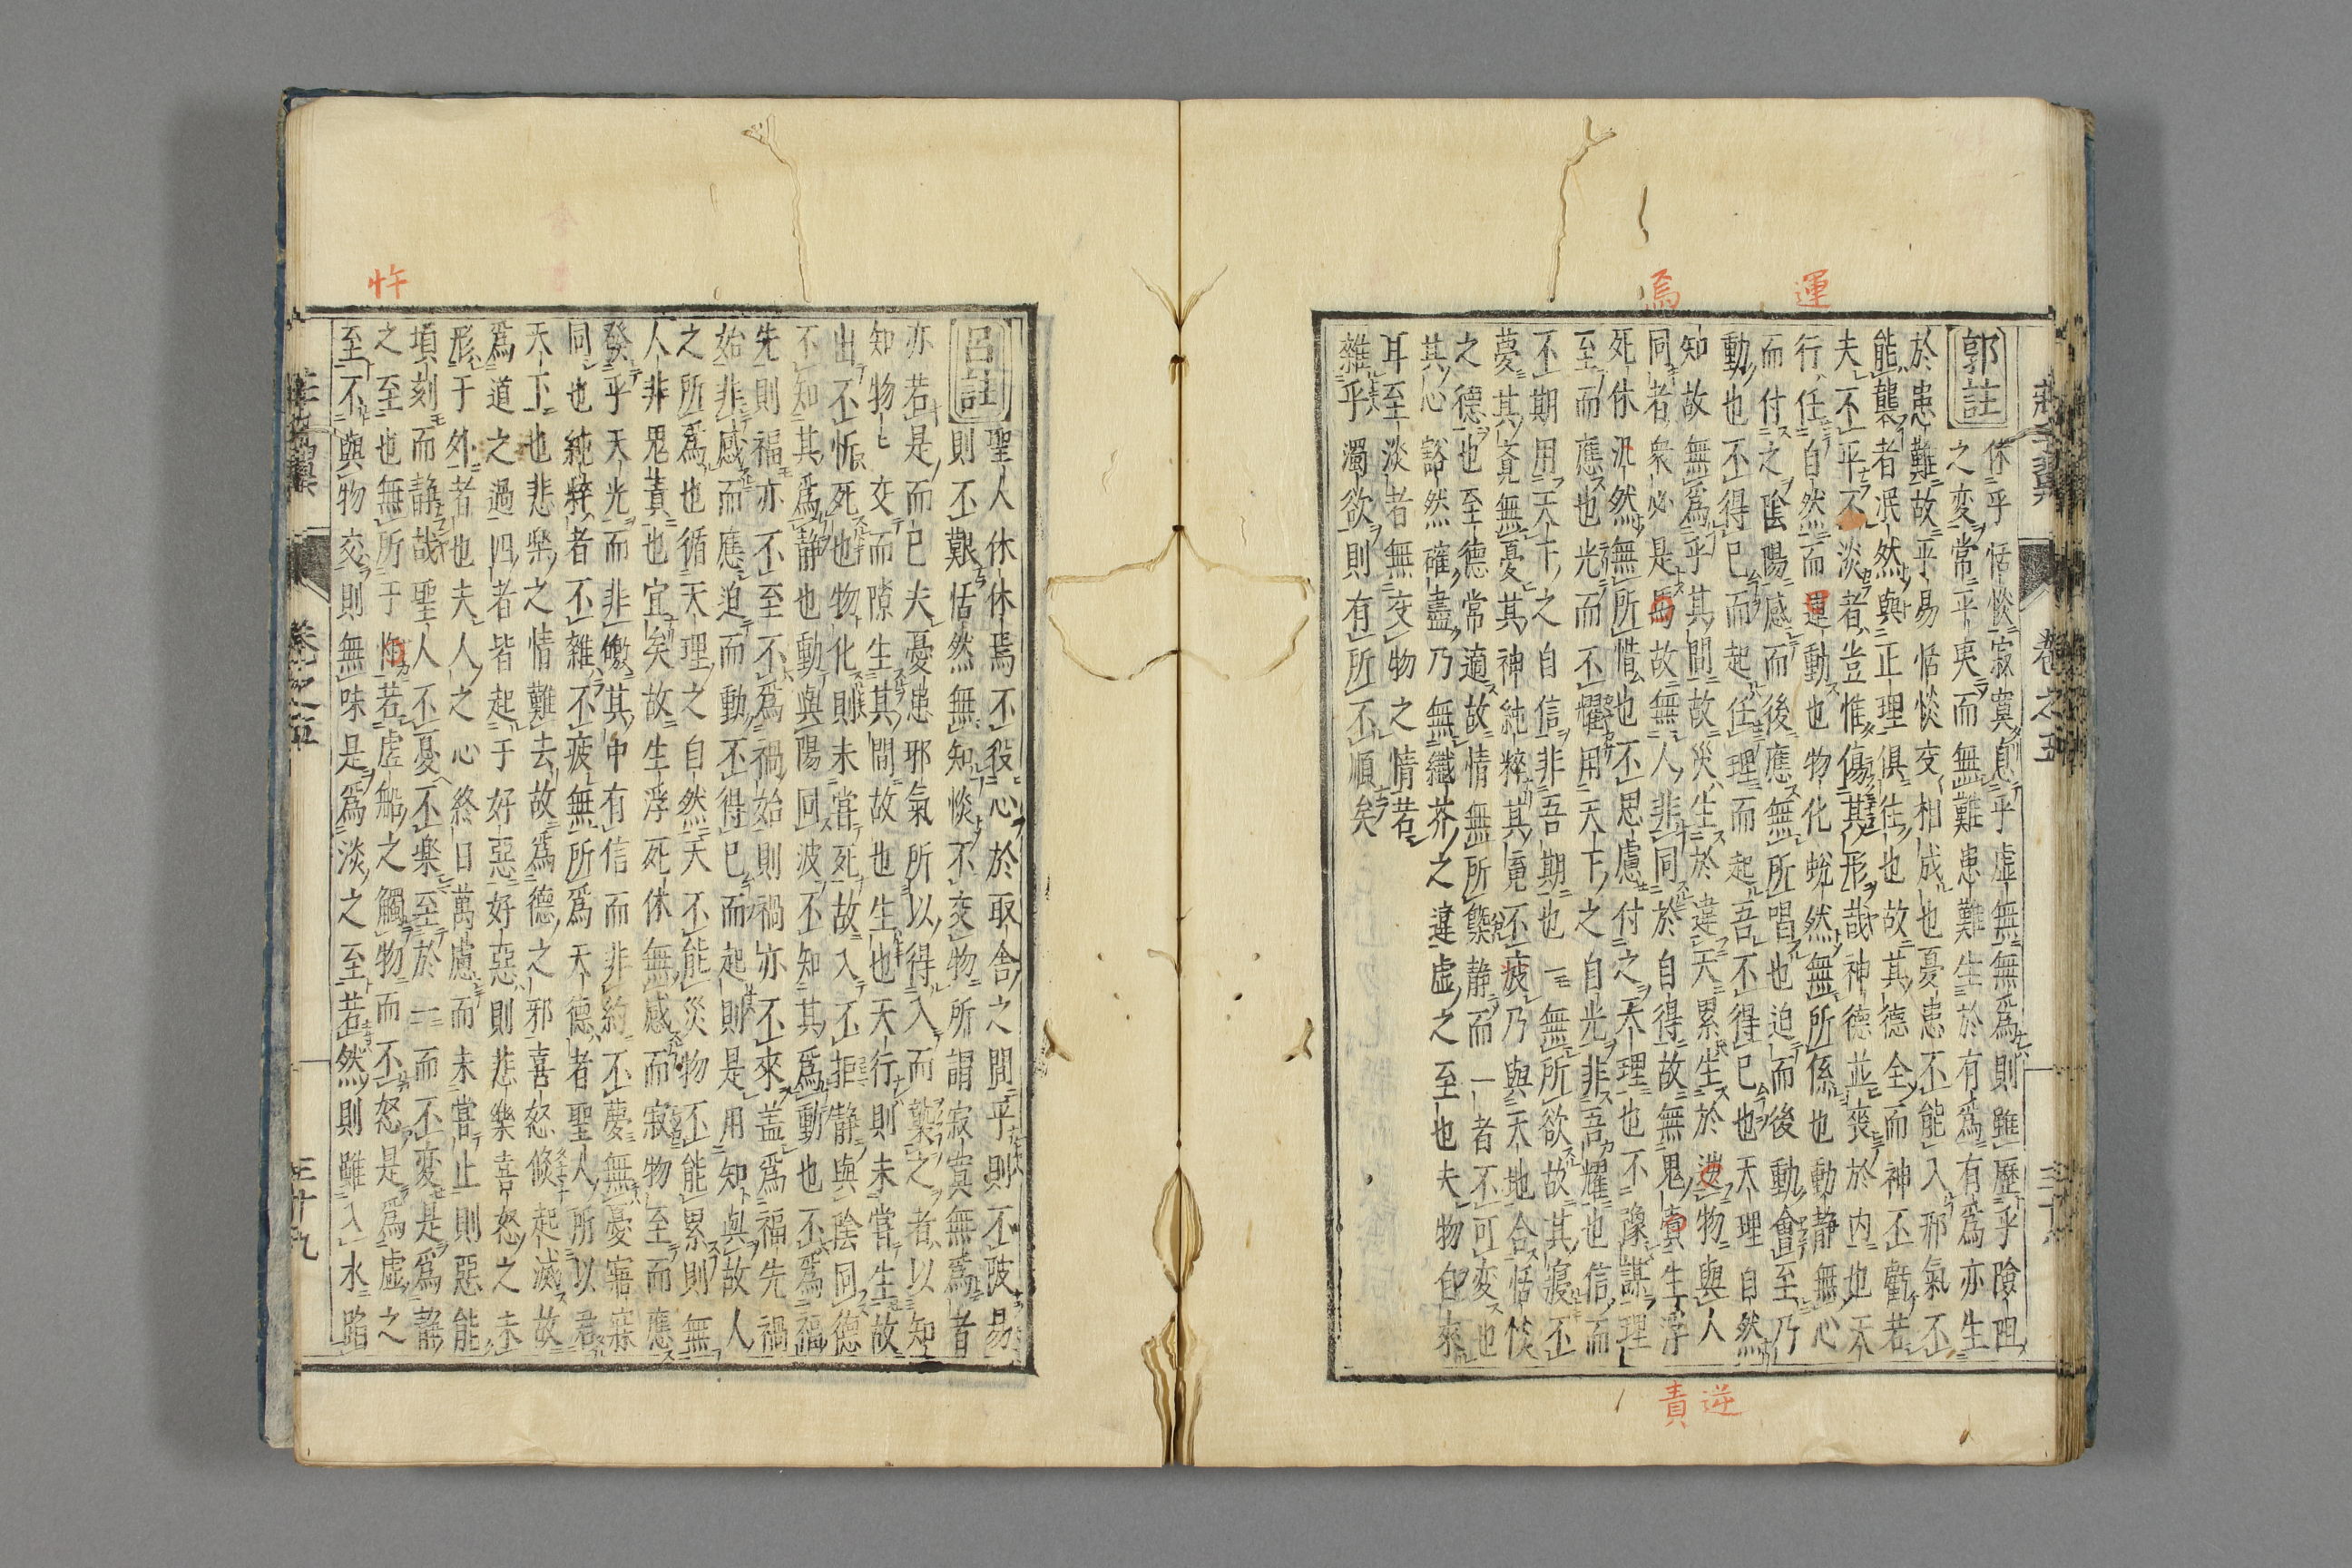 運
焉
郭註
休乎恬惔寂寞息乎虛無無爲則雖歷乎險阻
之変常平夷而無難患難生於有爲有爲亦生
於患難故平易恬惔交相成也憂患不能入邪氣不
能襲者泯然與正理俱往也故其德全而神不虧若
夫不平不淡者豈惟傷其形哉神德並喪於内也天
行任自然而運動也物化蛻然無所係也動静無心
而付之陰陽感而後應無所唱也迫而後動會至乃
動也不得已而起任理而起吾不得已也天理自然
知故無爲乎其間故災生於違天累生於逆物與人
同者衆必是焉故無人非同於自得故無鬼責生浮
死休汎然無所惜也不思慮付之天理也不豫謀理
至而應也光而不耀用天下之自光非吾耀也信而
不期用天下之自信非吾期也一無所欲故其寢不
夢其覚無憂其神純粹其䰟不疲乃與天地合恬惔
之德也至德常適故情無所槩静而一者不可変也
其心豁然確盡乃無纖芥之違虚之至也夫物自來
耳至淡者無交物之情若
雜乎濁欲則有所不順矣
莊子翼
卷之五
逆
責
忤
呂註
聖人休休焉不役心於取舎之間乎則不陂易
則不艱恬然無知惔不交物所謂寂寞無爲者
亦若是而已夫憂患邪氣所以得入而襲之者以知
知物交而隙生其間故也生也天行則未嘗生故
出不忻死也物化則未嘗死故入不拒静與陰同德
不知其爲静也動與陽同波不知其爲動也不爲福
先則福亦不至不爲禍始則禍亦不來盖爲福先禍
始非感而應迫而動不得已而起則是用知與故人
之所爲也循天理之自然天不能災物不能累則無
人非鬼責也宜矣故生浮死休無感而寂物至而應
發乎天光而非儌其中有信而非約不夢無憂寤寐
同也純粹者不雜不疲無所爲天德者聖人所以君
天下也悲樂之情難去故爲德之邪喜怒倏起滅故
爲道之過四者皆起于好惡好惡則悲樂喜怒之未
形于外者也夫人之心終日萬慮而未嘗止則惡能
頃刻而静哉聖人不憂不樂至於一而不変是爲静
之至也無所于忤若虚船之觸物而不怒是爲虚之
至不與物交則無味是爲淡之至若然則雖入水蹈
莊子翼
卷之五
三十九